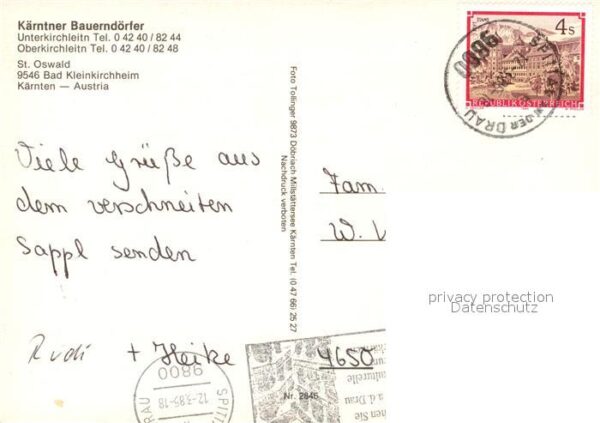 Kärntner Bauerndörfer
Unterkirchleitn Tel. 0 42 40 / 82 44
Oberkirchleitn Tel. 0 42 40 / 82 48
St. Oswald
9546 Bad Kleinkirchheim
Kärnten — Austria
4 S
REPUBLIK ÖSTERREICH
9800
SPITTAL AN DER DRAU
Foto Tollinger 9873 Döbriach Millstättersee Kärnten Tel. (0 47 66) 25 27
Nachdruck verboten
Viele Grüße aus
dem verschneiten
Sappl senden
Rudi + Heike
Fam.
W.
4650
privacy protection
Datenschutz
9800
12-3.85-18
SPITT
DRAU
kulturelle
a.d. Drau
Nr. 2845